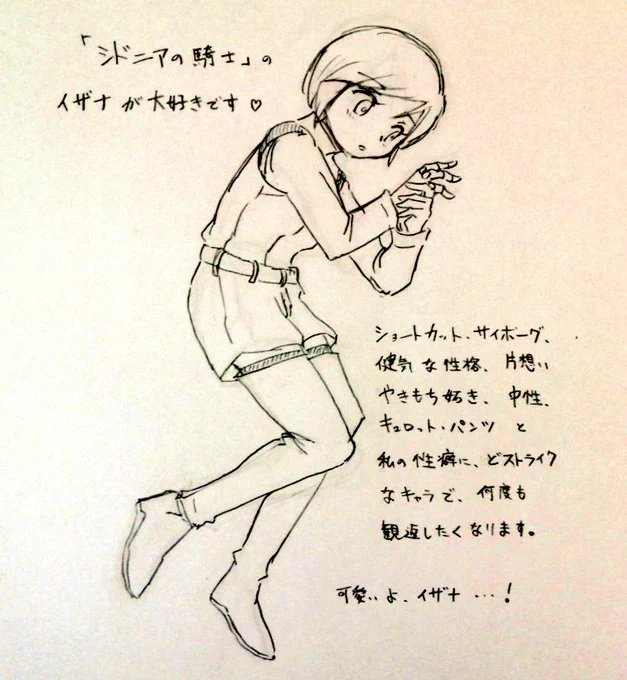 「シドニアの騎士」の
イザナが大好きです♡
ショートカット・サイボーグ、
健気な性格、片想い
やきもち妬き、中性、
キュロット・パンツと
私の性癖に、どストライク
なキャラで、何度も
観返したくなります。
可愛いよ、イザナ…!